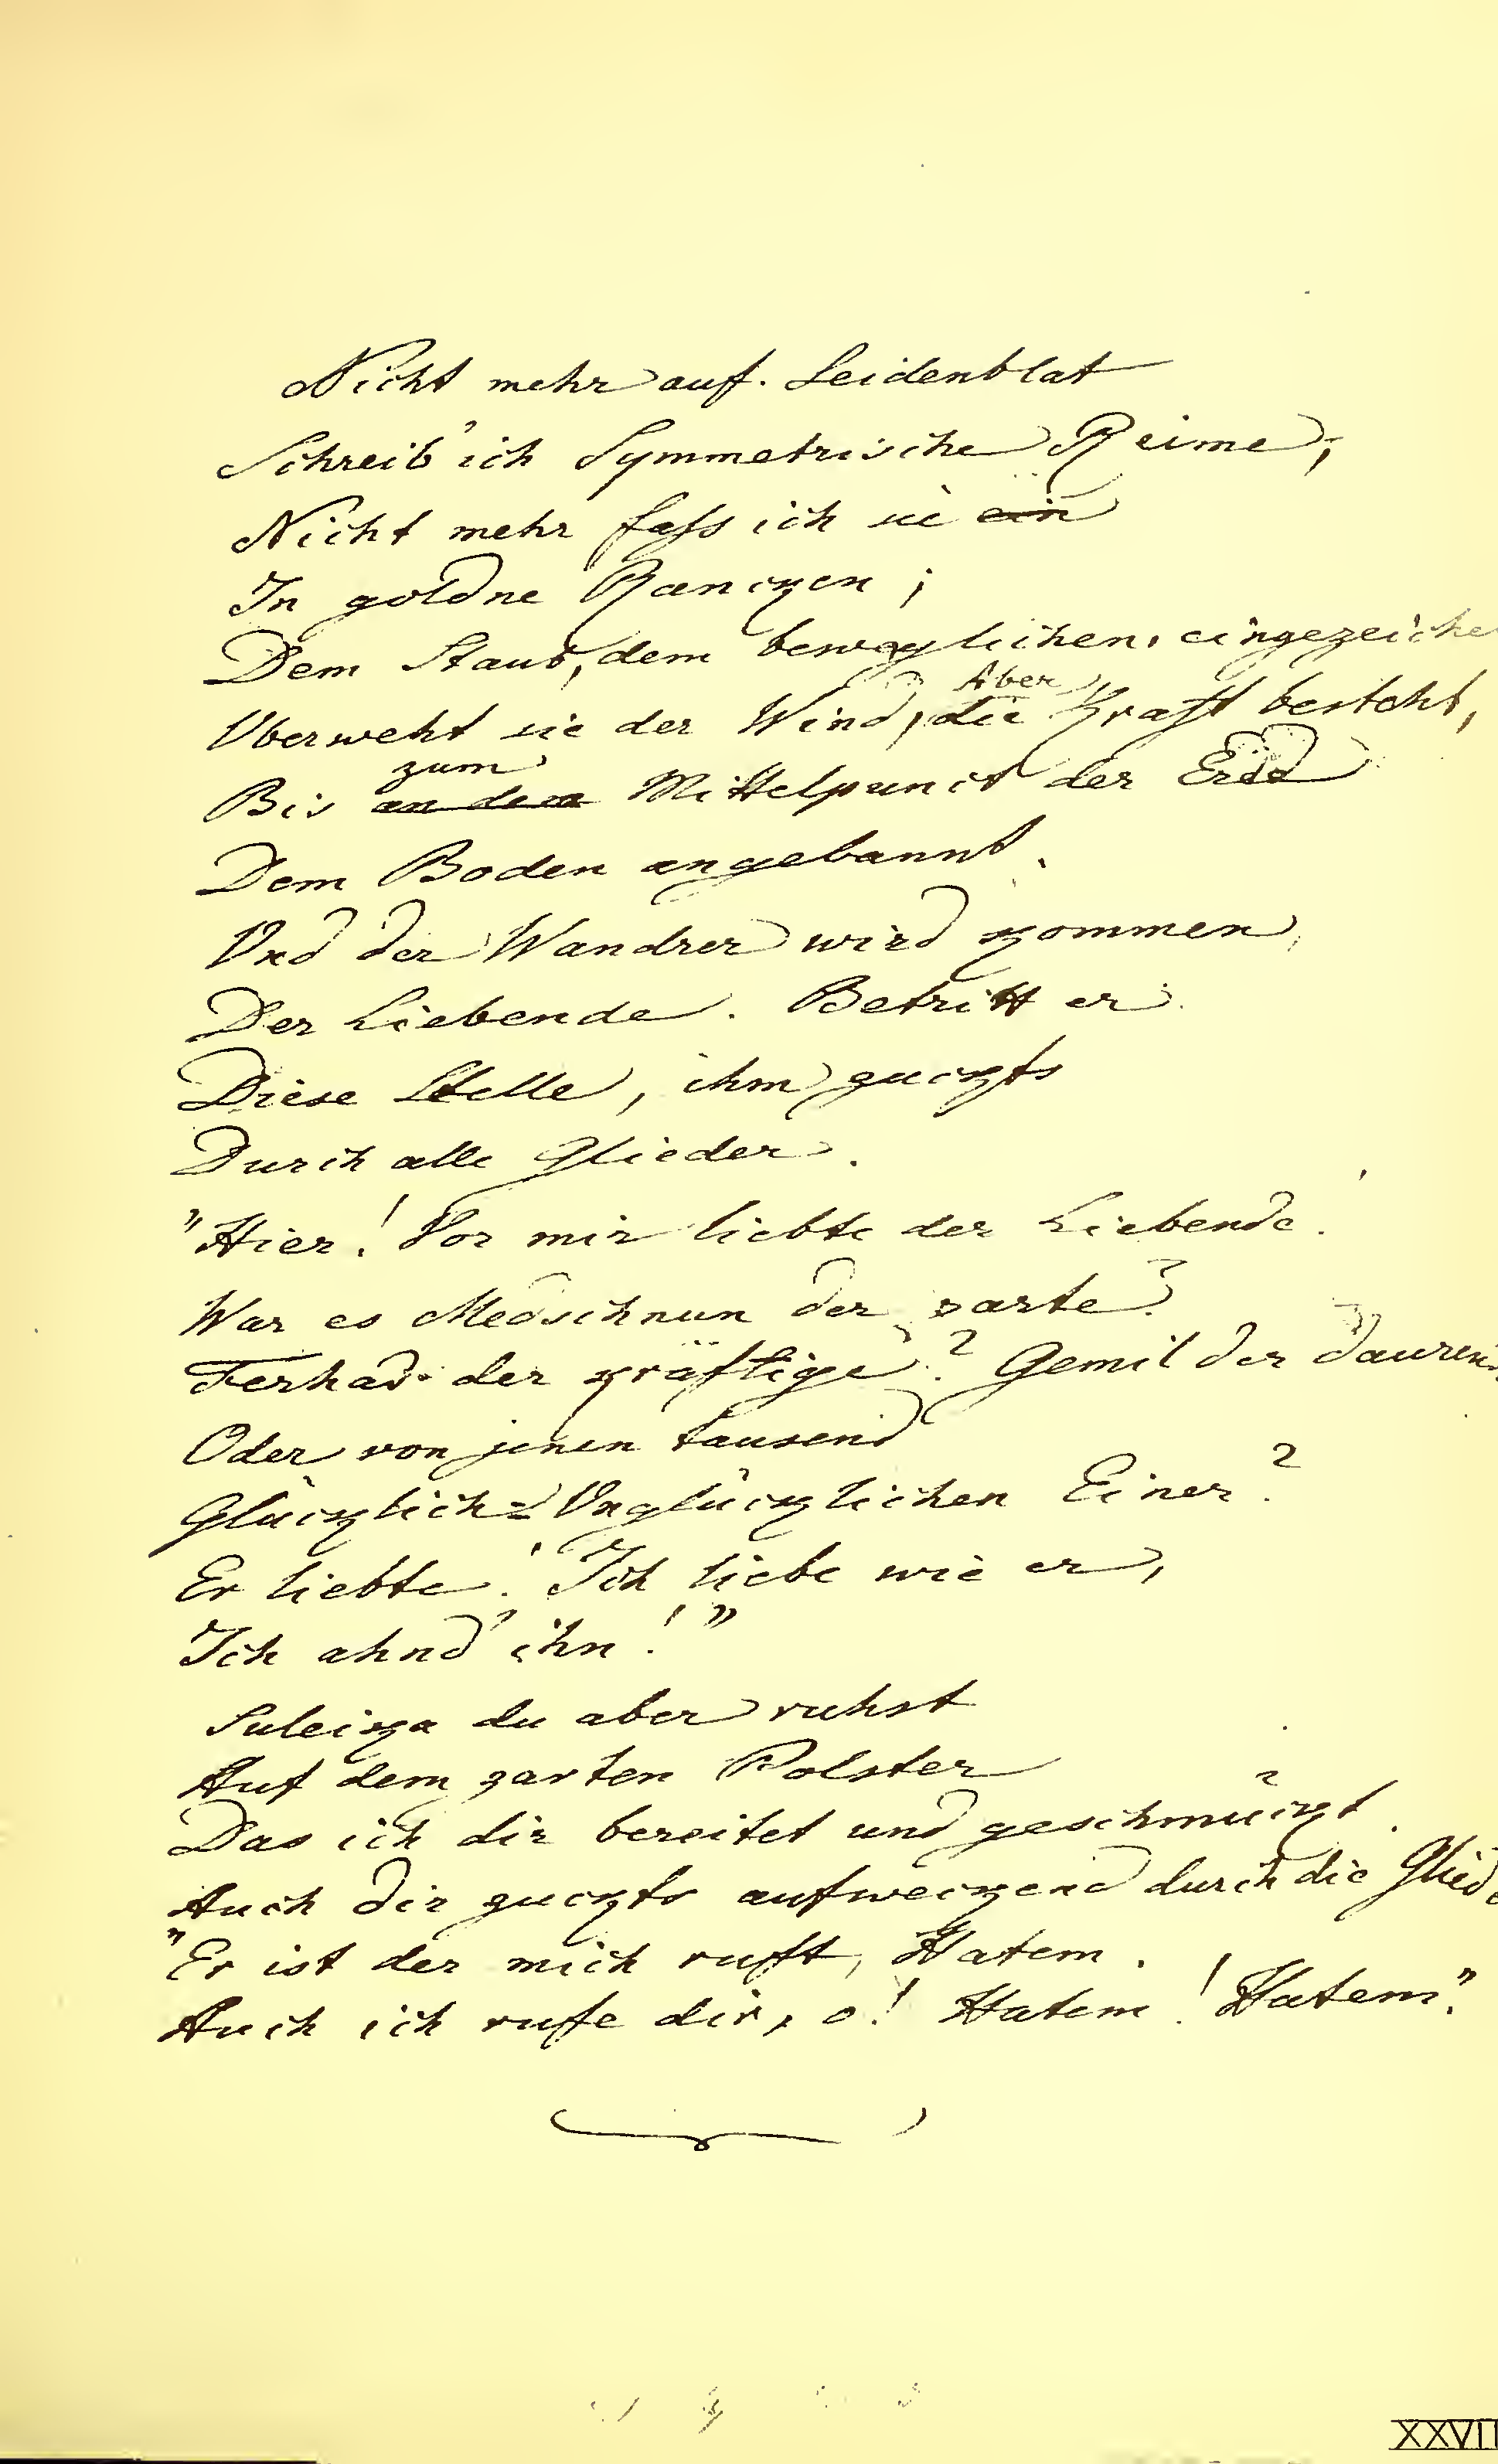 Nicht mehr auf Seidenblat
Schreib' ich Symmetrische Reime;
Nicht mehr fass ich sie ein
In goldne Rancken;
Dem Staub, dem beweglichen, eingezeichne
Überweht sie der Wind, aber die Kraft besteht,
zum
Bis an den Mittelpunct der Erde
Dem Boden angebannt.
Und der Wandrer wird kommen,
Der Liebende. Betritt er
Diese Stelle, ihm zuckts
Durch alle Glieder.
"Hier! Vor mir liebte der Liebende.
War es Medschnun der zarte?
Ferhad der kräftige? Gemil der daurend
Oder von jenen tausend
Glücklich=Unglücklichen Einer?
Er liebte! Ich liebe wie er,
Ich ahnd' ihn!"
Suleika du aber ruhst
Auf dem zarten Polster
Das ich dir bereitet und geschmückt.
Auch dir zuckts aufweckend durch die Gliede
"Er ist der mich ruft, Hatem.
Auch ich rufe dir, o! Hatem! Hatem".
XXVII